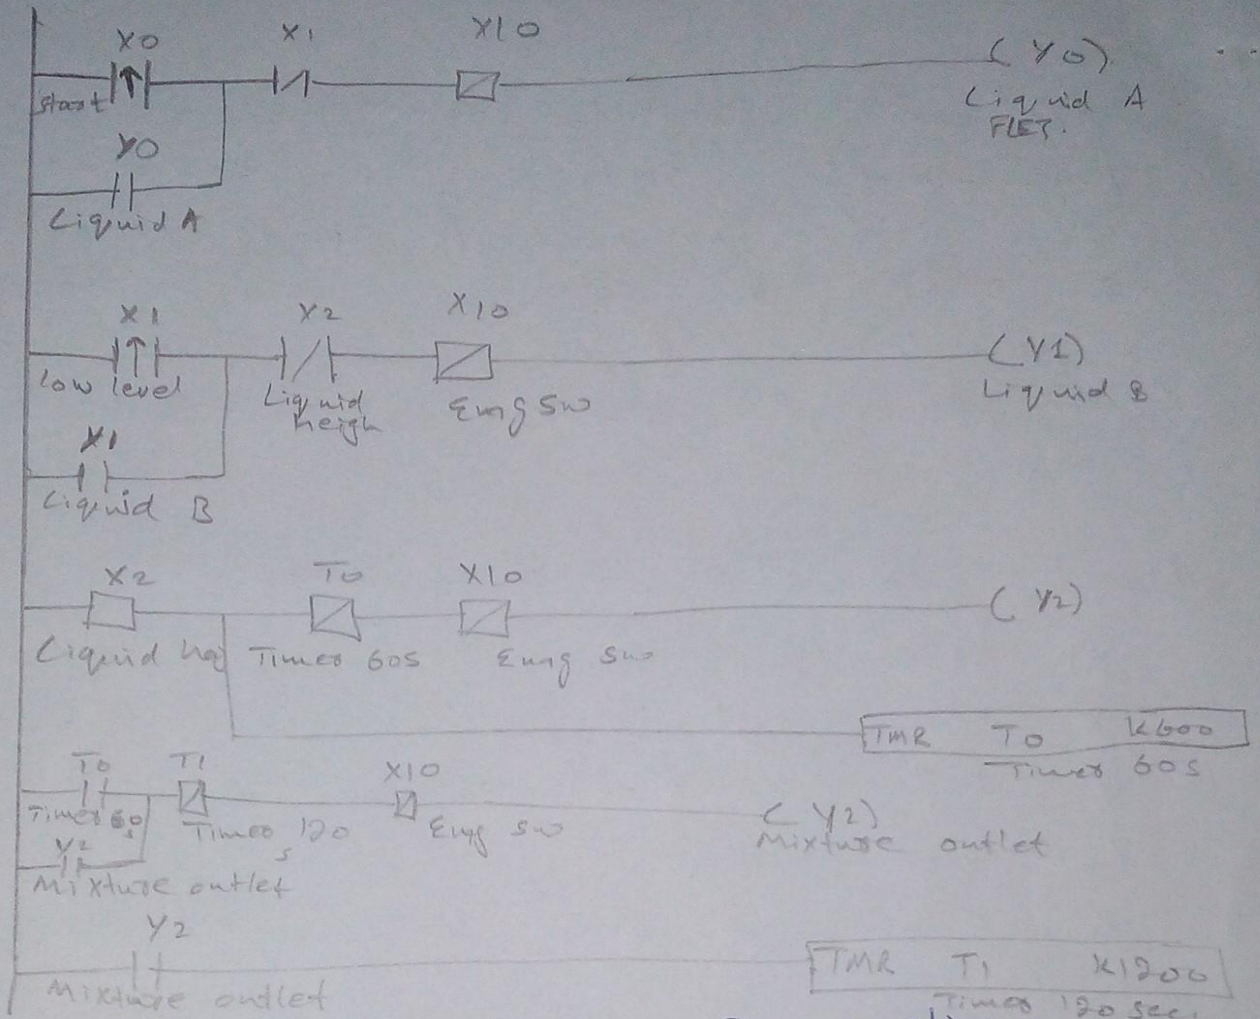 X0 X1 X10
( Y0)
start
Liquid A
Y0
Liquid A
X1 X2 X10
(Y1)
low level Liquid Emg Sw Liquid B
heigh
Liquid B
X2 T0 X10
( Y2)
Liquid Timer 60s Emg Sw
TMR T0 K600
Timer 60s
T0 T1 X10
( Y2)
Timer 60s Timer 120s Emg Sw Mixture outlet
Y2
Mixture outlet
Y2
TMR T1 K1200
Mixture outlet
Timer 120 sec